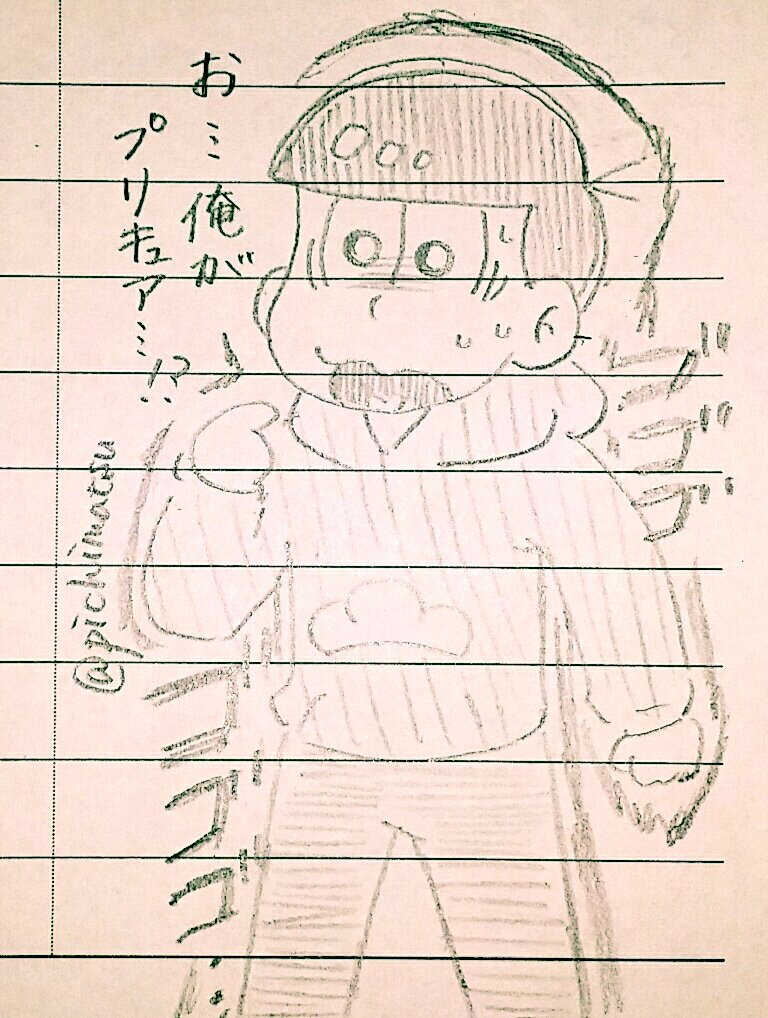 お…俺が
プリキュア…!?
ゴゴゴ
ゴゴゴゴ…
@pichimatsu